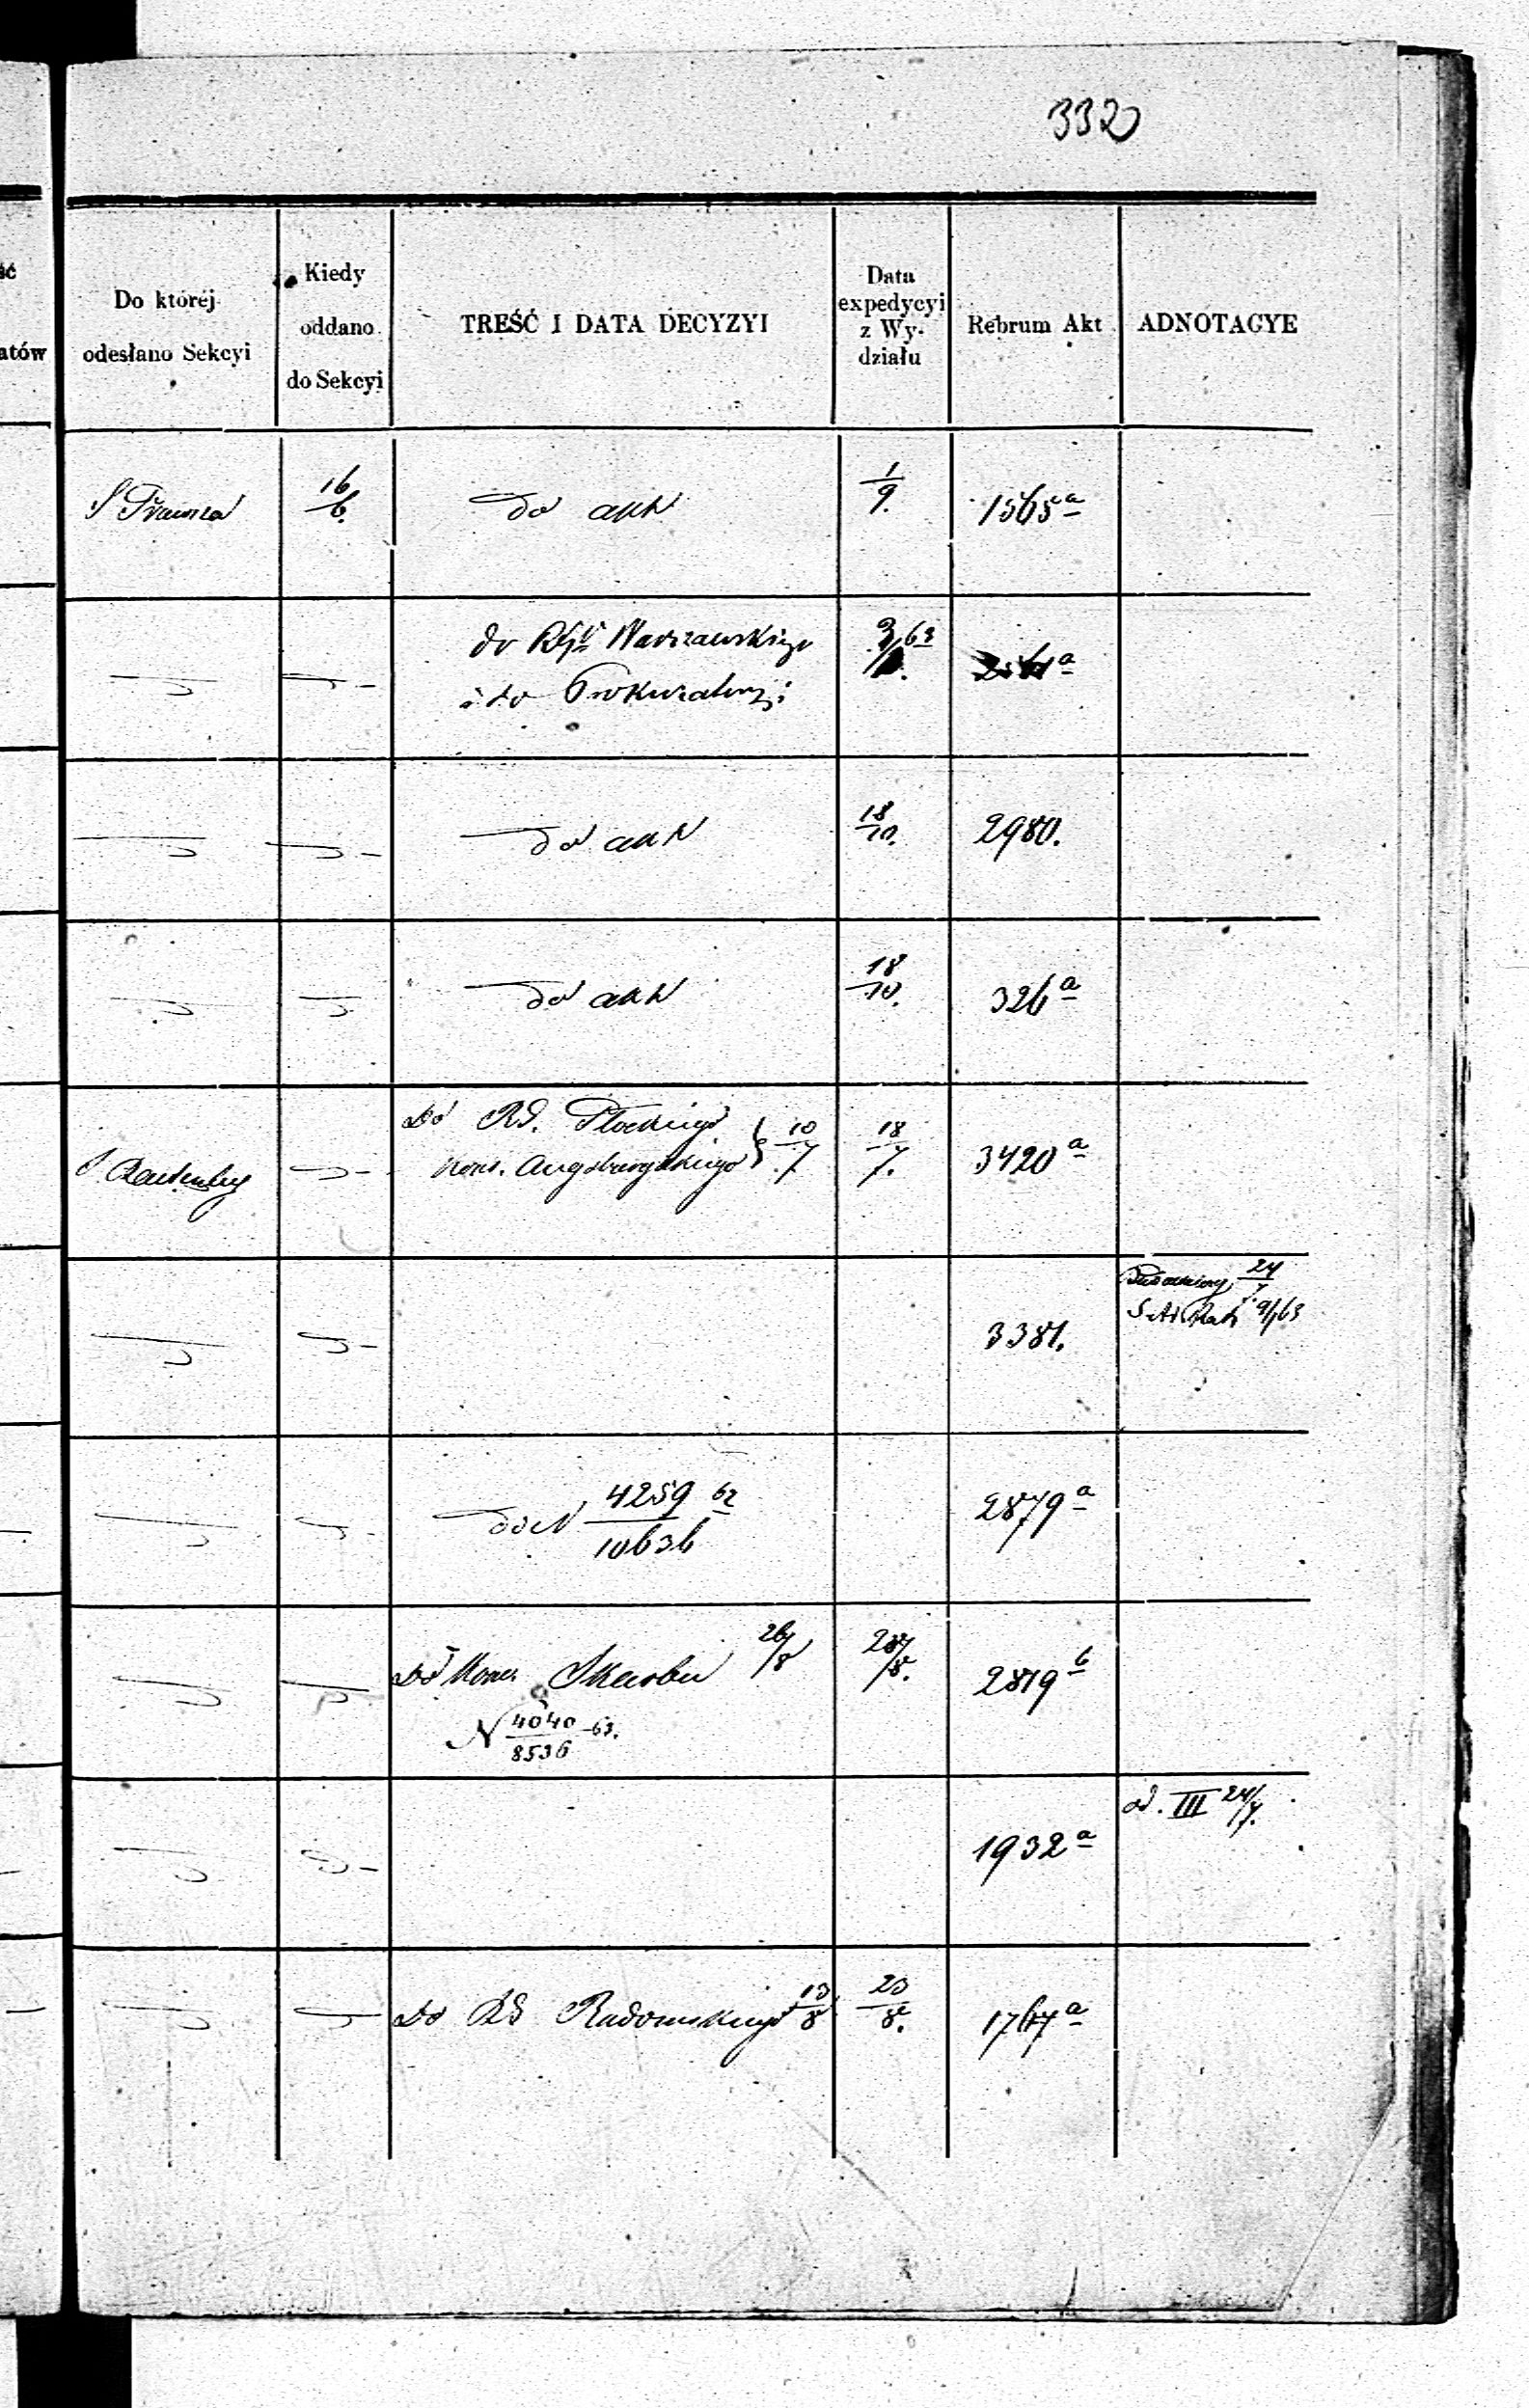 332
Do któréj
odesłano Sekcyi
Kiedy
oddano
do Sekcyi
TREŚĆ I DATA DECYZYI
Data
expedycyi
z Wy-
działu
Rebrum Akt
ADNOTACYE
ść
atów
16/6.
do akt
1/9.
1565 a
do Rz Warszawskiego
i do Prokuratoryi
63
a
do akt
18/10.
2980.
do akt
18/10.
326 a
Do RG. Płockiego
Kons. Augsburgskiego } 10/7
18/7.
3420 a
3381.
24/7.
9/1 63
do N 4259/10636 62
2879 a
Do Skarbu 26/8
N 4040/8536 -63.
/8.
2819 b
1932 a
od. III 24/7.
Do RG Radomskiego 13/8
23/8.
1767 a